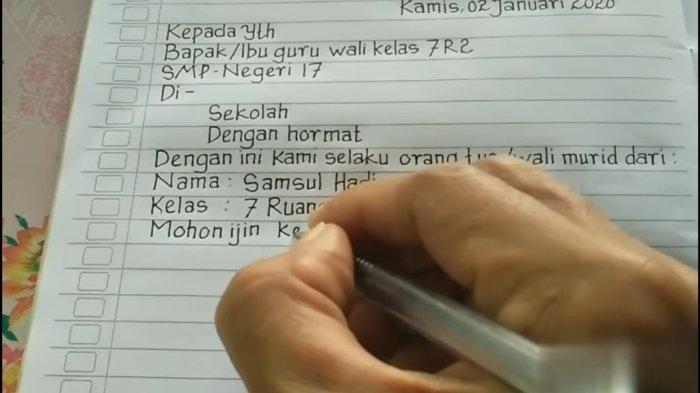 Kamis, 02 Januari 2020
Kepada Yth
Bapak/Ibu guru wali kelas 7R2
SMP-Negeri 17
Di-
Sekolah
Dengan hormat
Dengan ini Kami selaku orang tua/wali murid dari:
Nama : Samsul Hadi
Kelas : 7 Ruang
Mohon ijin Ke